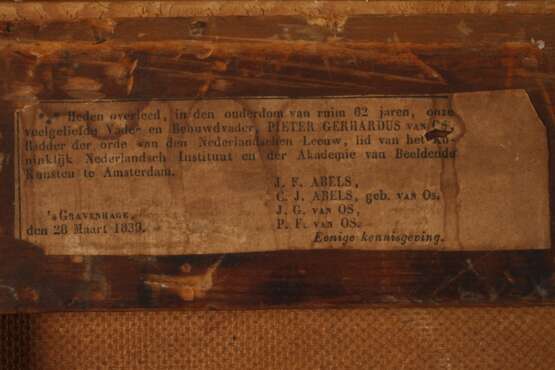 Heden overleed, in den ouderdom van ruim 62 jaren, onze
veelgeliefde Vader en Behuwdvader, PIETER GERHARDUS VAN OS,
Ridder der orde van den Nederlandschen Leeuw, lid van het Ko-
ninklijk Nederlandsch Instituut en der Akademie van Beeldende
Kunsten te Amsterdam.
J. F. ABELS,
C. J. ABELS, geb. VAN OS.
'S GRAVENHAGE,
J. G. VAN OS,
den 28 Maart 1839.
P. F. VAN OS.
Eenige kennisgeving.